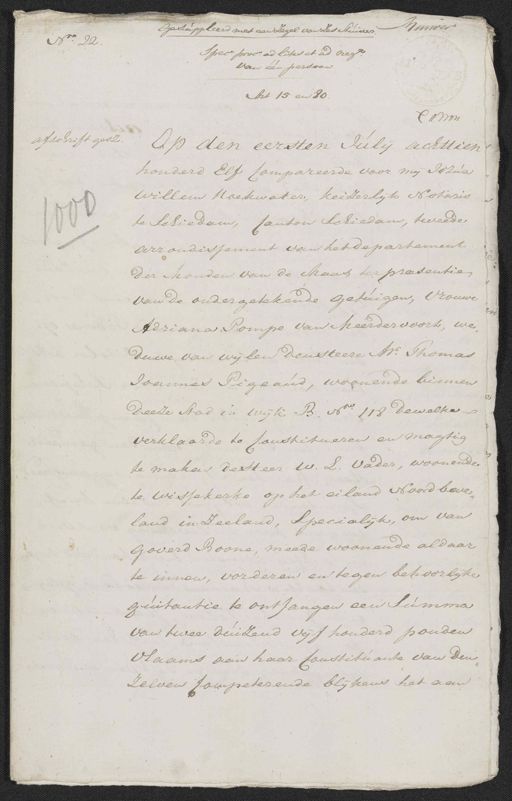 Gesuppleerd met een Zegel van Zes Stuivers
Nro. 22.
Spec. procr. ad lites et ad neg.
van één persoon
Art 15 en 20
Comm
afschrift gez.
1000
Op den eersten Julÿ achttien
honderd Elf Compareerde voor mÿ Josúa
Willem Hoekwater, keizerlÿk Notaris
te Schiedam, Canton Schiedam, tweede
arrondissement van het departement
der Monden van de Maas ter presentie
van de ondergetekende getúigen, Vrouwe
Adriana Pompe van Meerdervoort, we-
duwe van wÿlen den Heere Mr. Thomas
Joannes Pigeaúd, woonende binnen
deeze Stad in wÿk B. Nro. 118 dewelke
verklaarde te Constitueren en magtig
te maken den Heer W. L. Vader, woonende
te Wissekerke op het eiland Noordbeve-
land in Zeeland, Specialÿk, om van
Goverd Boone, meede woonende aldaar
te innen, vorderen en tegen behoorlÿke
qúitantie te ontfangen een Súmma
van twee dúizend vÿf honderd ponden
Vlaams aan haar Constitúante van den
Zelven Competerende blÿkens het aan